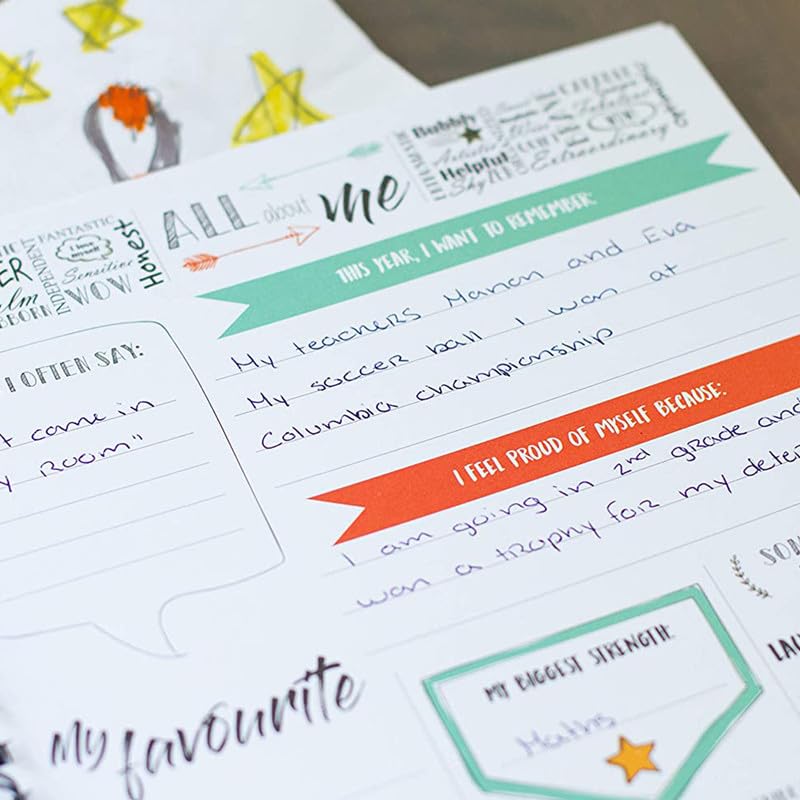 Bubbly
Artistic
Helpful
Shy
Extraordinary
FANTASTIC
INDEPENDENT
I love
myself
Sensitive
WOW
Honest
ALL about me
THIS YEAR, I WANT TO REMEMBER:
My teachers Manon and Eva
My soccer ball I won at
Columbia championship
I OFTEN SAY:
come in
Room"
I FEEL PROUD OF MYSELF BECAUSE:
I am going in 2nd grade and
won a trophy for my
MY BIGGEST STRENGTH:
Maths
My favourite